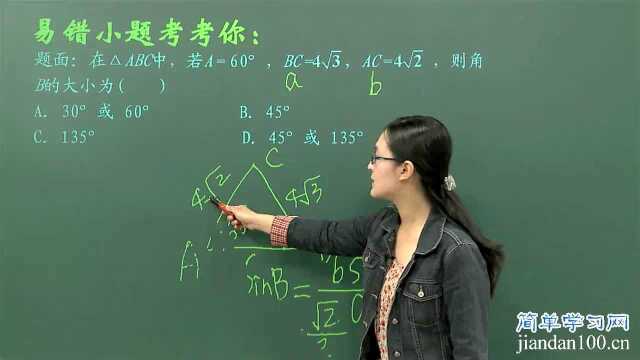 易错小题考考你：
题面：在△ABC中，若A=60°，BC=4√3，AC=4√2，则角
a b
B的大小为(    )
A. 30° 或 60°
B. 45°
C. 135°
D. 45° 或 135°
C
4√2
4√3
A
sinB = bs
√2
简单学习网
jiandan100.cn